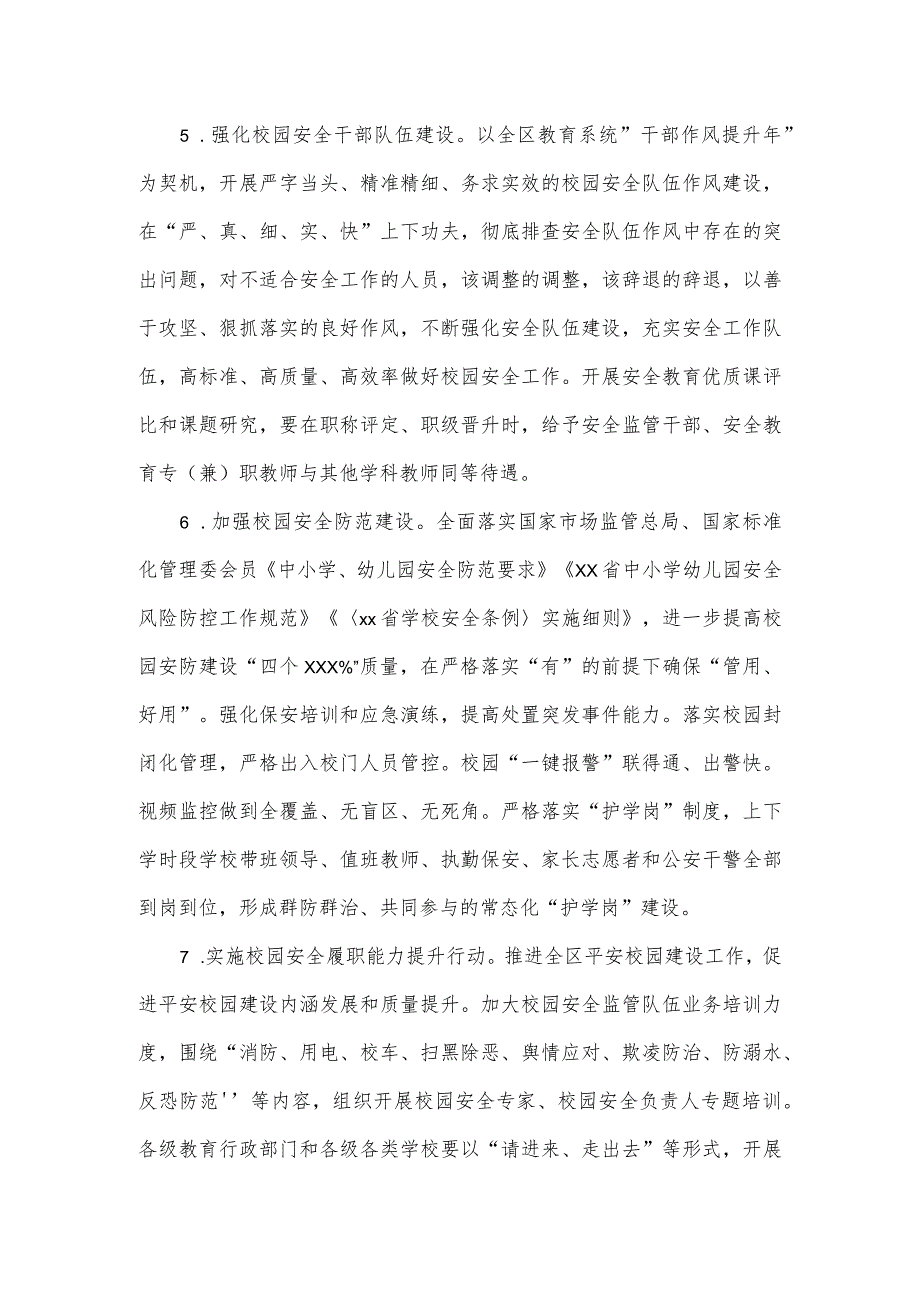 5 .强化校园安全干部队伍建设。以全区教育系统”干部作风提升年”
为契机，开展严字当头、精准精细、务求实效的校园安全队伍作风建设，
在“严、真、细、实、快”上下功夫，彻底排查安全队伍作风中存在的突
出问题，对不适合安全工作的人员，该调整的调整，该辞退的辞退，以善
于攻坚、狠抓落实的良好作风，不断强化安全队伍建设，充实安全工作队
伍，高标准、高质量、高效率做好校园安全工作。开展安全教育优质课评
比和课题研究，要在职称评定、职级晋升时，给予安全监管干部、安全教
育专（兼）职教师与其他学科教师同等待遇。
6 .加强校园安全防范建设。全面落实国家市场监管总局、国家标准
化管理委会员《中小学、幼儿园安全防范要求》《XX省中小学幼儿园安全
风险防控工作规范》《〈xx省学校安全条例〉实施细则》，进一步提高校
园安防建设“四个XXX%”质量，在严格落实“有”的前提下确保“管用、
好用”。强化保安培训和应急演练，提高处置突发事件能力。落实校园封
闭化管理，严格出入校门人员管控。校园“一键报警”联得通、出警快。
视频监控做到全覆盖、无盲区、无死角。严格落实“护学岗”制度，上下
学时段学校带班领导、值班教师、执勤保安、家长志愿者和公安干警全部
到岗到位，形成群防群治、共同参与的常态化“护学岗”建设。
7 .实施校园安全履职能力提升行动。推进全区平安校园建设工作，促
进平安校园建设内涵发展和质量提升。加大校园安全监管队伍业务培训力
度，围绕“消防、用电、校车、扫黑除恶、舆情应对、欺凌防治、防溺水、
反恐防范'’等内容，组织开展校园安全专家、校园安全负责人专题培训。
各级教育行政部门和各级各类学校要以“请进来、走出去”等形式，开展